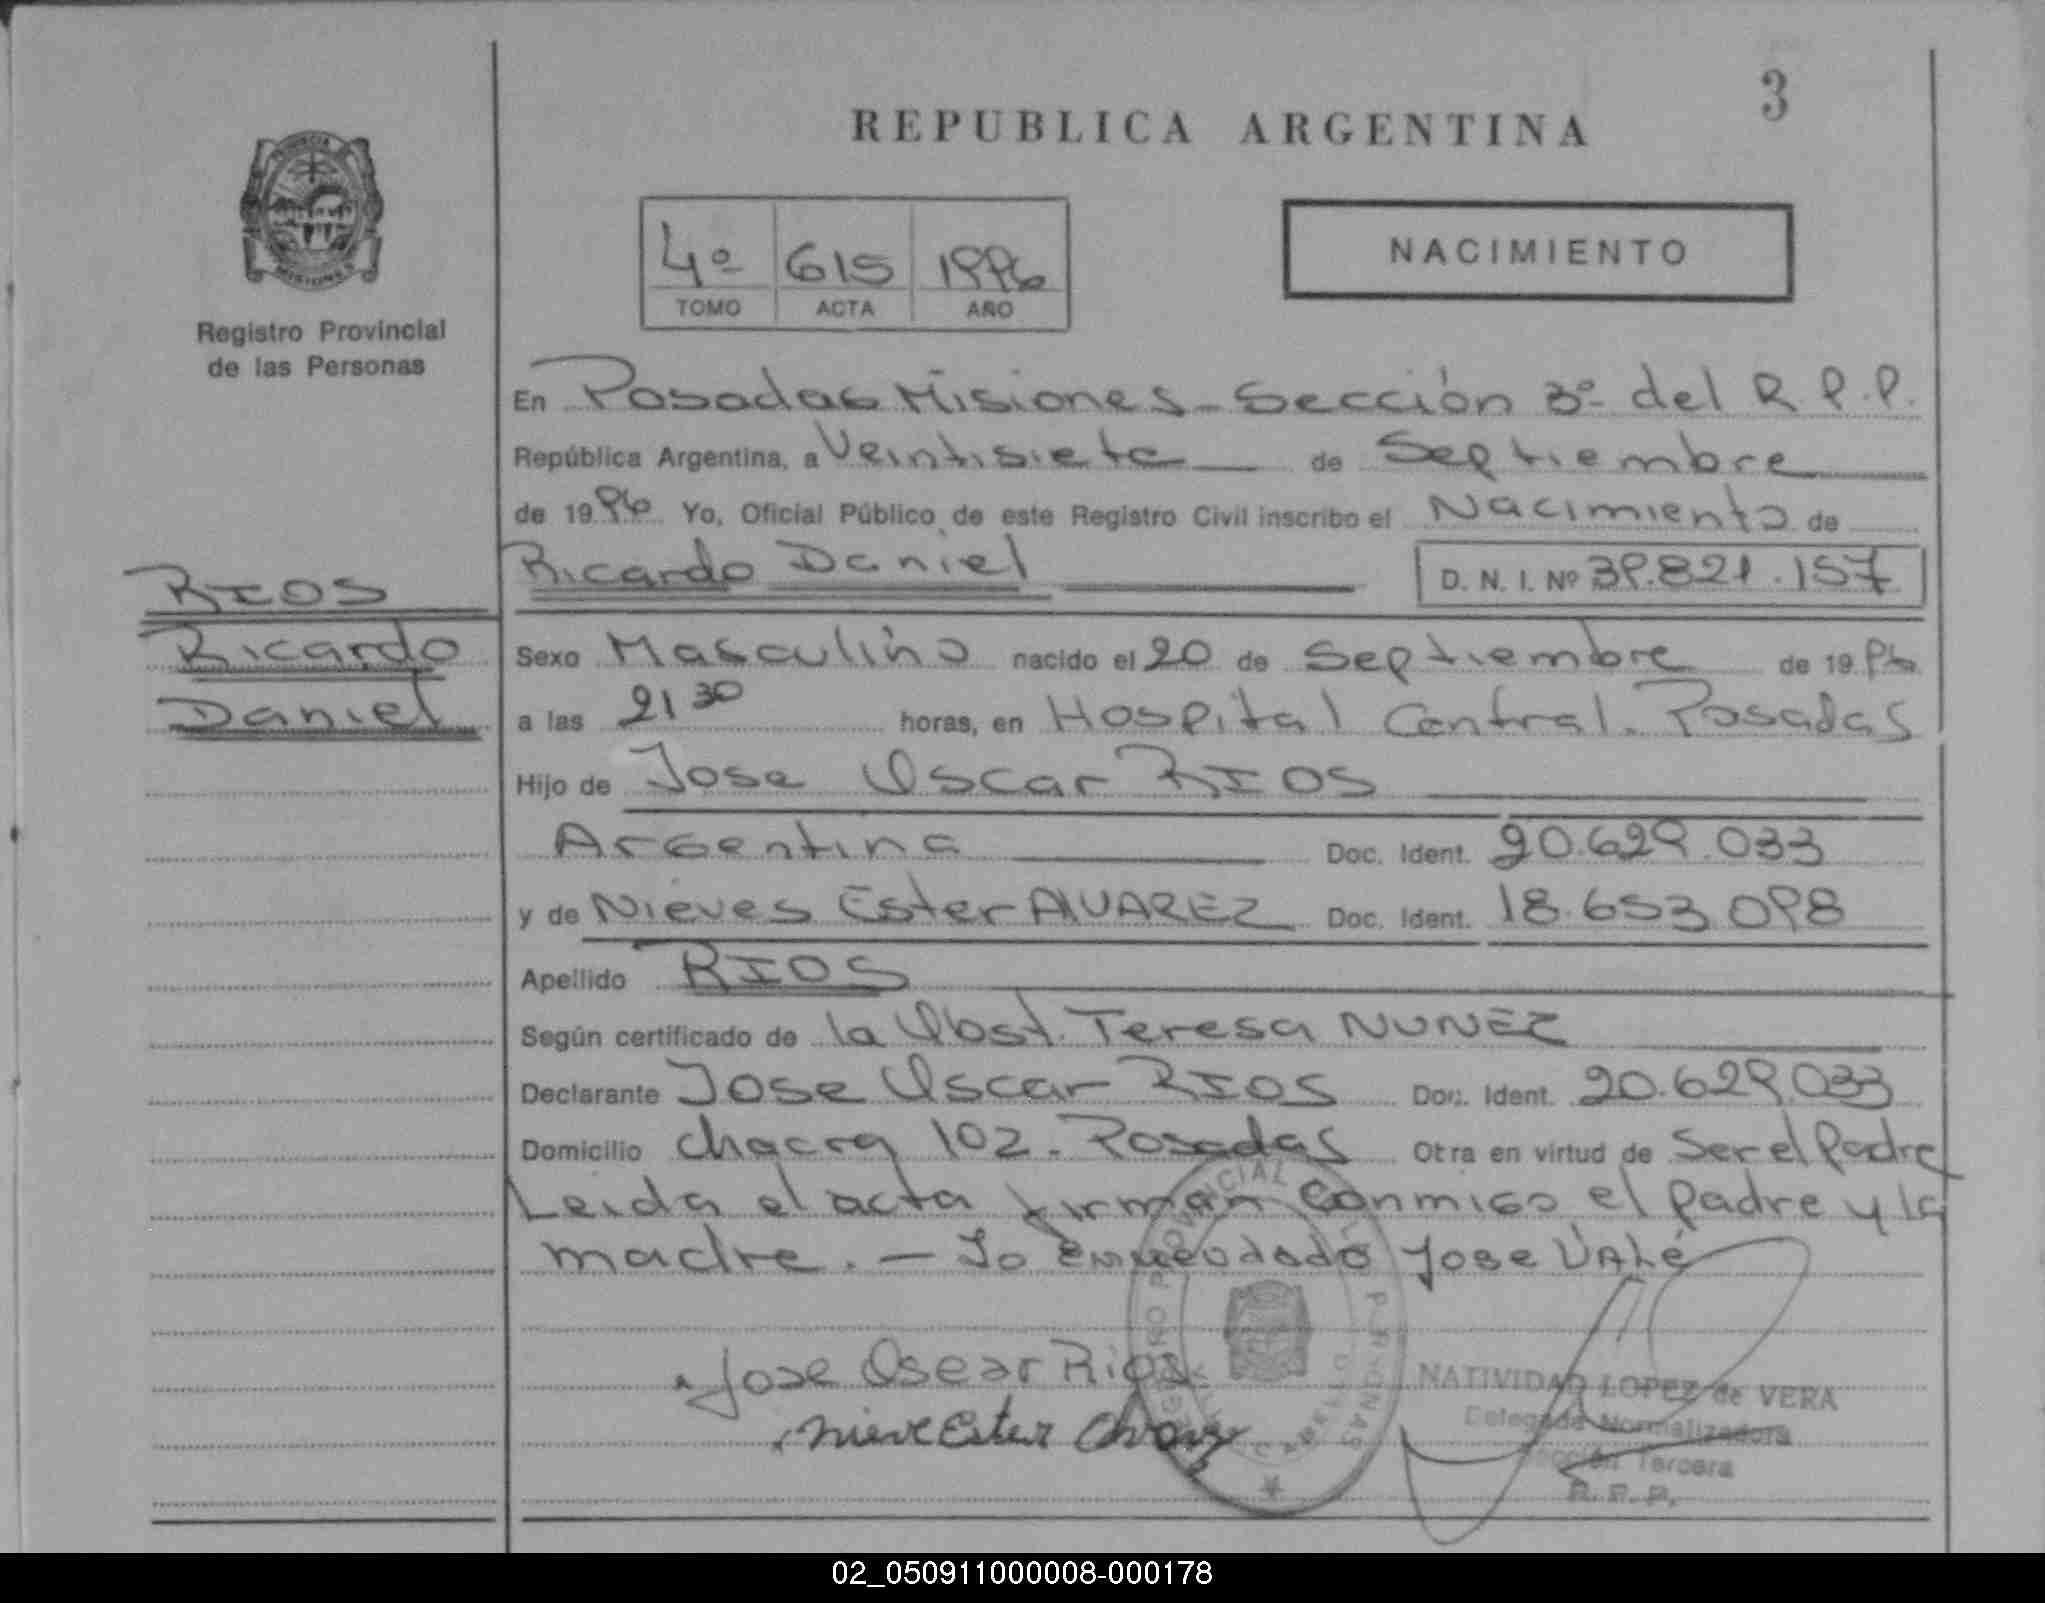 3
REPUBLICA ARGENTINA
4º 615 1996
TOMO ACTA AÑO
NACIMIENTO
Registro Provincial
de las Personas
En Posadas Misiones - Sección 3º del R.P.P.
República Argentina, a Veintisiete de Septiembre
de 1996 Yo, Oficial Público de este Registro Civil inscribo el Nacimiento de
Ricardo Daniel D. N. I. Nº 39.821.157
RIOS
Ricardo
Daniel
Sexo Masculino nacido el 20 de Septiembre de 1996
a las 21 30 horas, en Hospital Central. Posadas
Hijo de Jose Oscar RIOS
Argentina Doc. Ident. 20.629.033
y de Nieves Ester ALVAREZ Doc. Ident. 18.653.098
Apellido RIOS
Según certificado de la Obst. Teresa NUNEZ
Declarante Jose Oscar RIOS Doc. Ident. 20.629.033
Domicilio chacra 102 - Posadas Otra en virtud de Ser el Padre
Leida el acta firman conmigo el padre y la
madre. - Lo enmendado Jose VALE
Jose Oscar Rios
Nieve Ester
NATIVIDAD LOPEZ de VERA
Delegada Normalizadora
Sección Tercera
R. P. P.
02_050911000008-000178